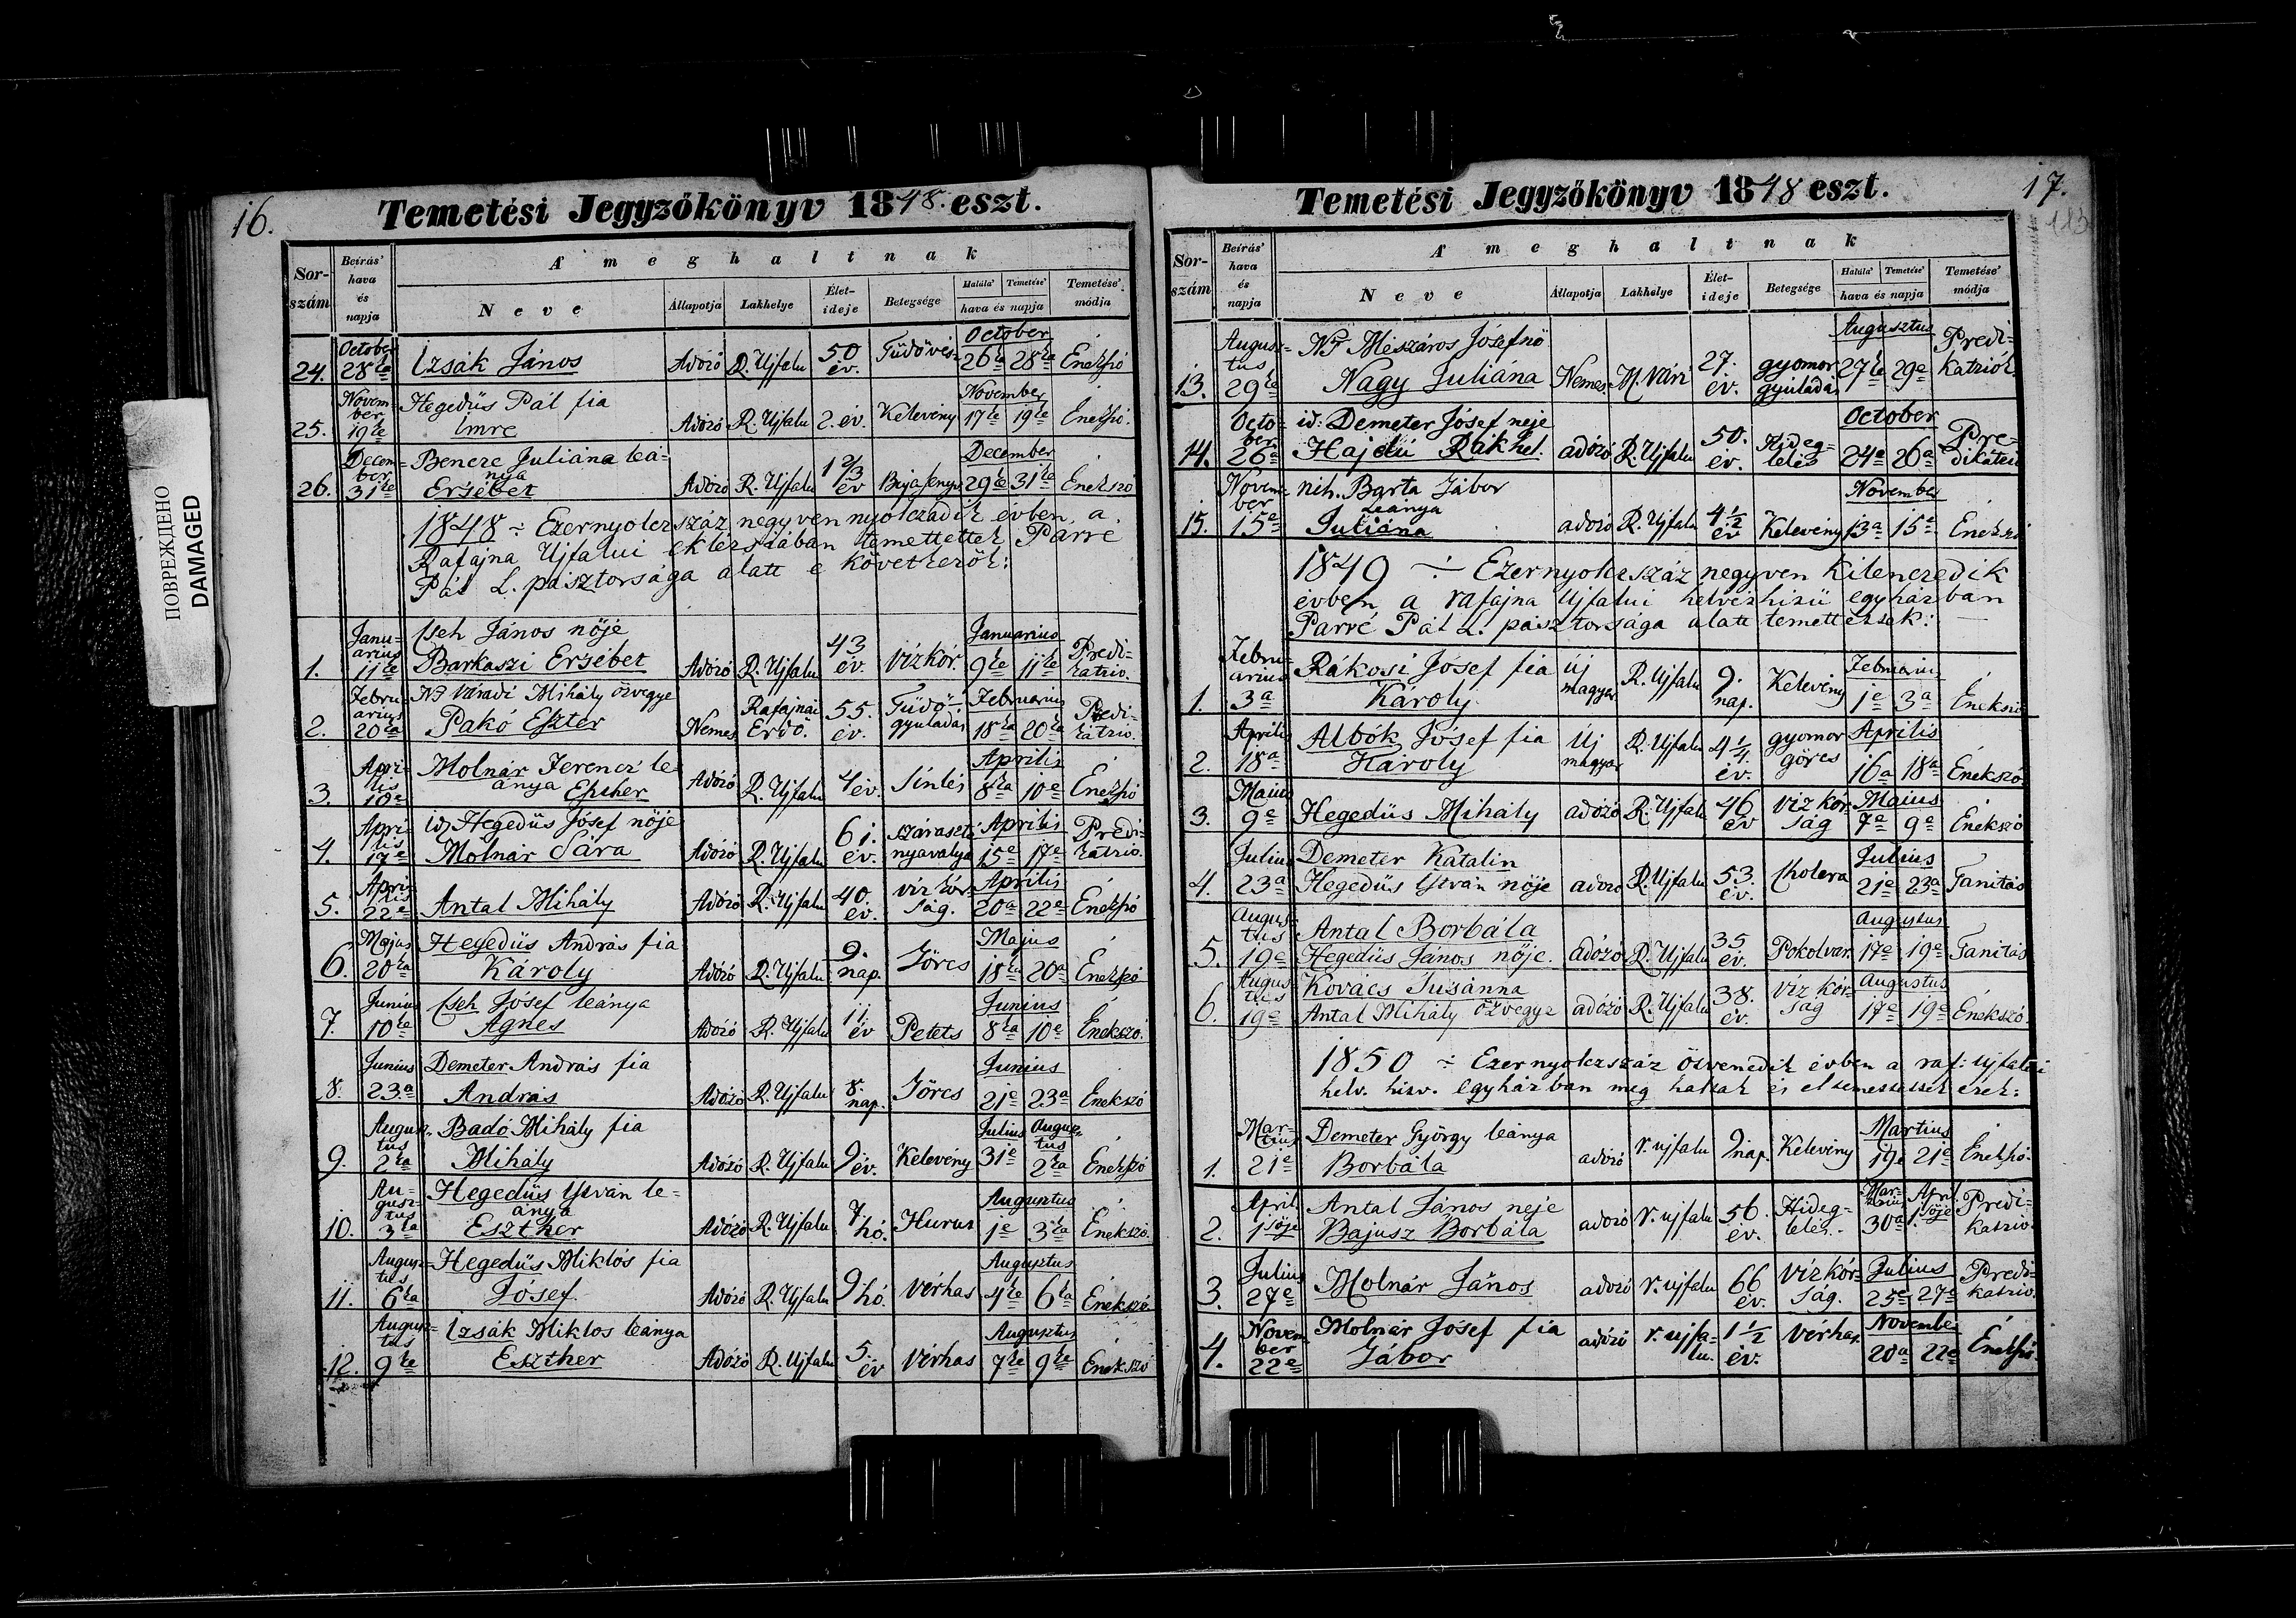 ПОВРЕЖДЕНО
DAMAGED
16.
Temetési Jegyzőkönyv 1848. eszt.
Sor-szám
Beírás' hava és napja
A' meghaltnak
Neve
Állapotja
Lakhelye
Élet-ideje
Betegsége
Halála' Temetése'
hava és napja
Temetése' módja
24. October 28ka Izsák János Adózó R. Ujfalu 50 év. Tüdővész October 26ka 28ka Énekszó
25. November 19ke Hegedüs Pál fia
Imre Adózó R. Ujfalu 2. év. Kelevény November 17ke 19ke Énekszó.
26. December 31ke Bencze Juliána leá-
nya
Ersébet Adózó R. Ujfalu 1 2/3 év December 29ke 31ke Énekszó
1848 ÷ Ezernyolczszáz negyven nyolczadik évben, a
Rafajna Ujfalui eklézsiában temettettek Parré
Pál L. pásztorsága alatt e következők:
1. Januarius 11ke Cseh János nője
Barkaszi Ersébet Adózó R. Ujfalu 43 év. Vízkór. Januarius 9ke 11ke Predi-
katzio.
2. Februarius 20ka Ns Váradi Mihály özvegye
Pakó Eszter Nemes Rafajnai Erdő. 55. év. Tüdő-
gyuladás Februarius 18ka 20ka Predi-
kátzio.
3. Aprilis 10e Molnár Ferencz le-
ánya Eszther Adózó R. Ujfalu 4 év. Sinlés Aprilis 8ka 10e Énekszó
4. Aprilis 17e id. Hegedüs Jósef nője
Molnár Sára Adózó R. Ujfalu 61. év. szárasztó
nyavalya Aprilis 15e 17e Predi-
kátzio.
5. Aprilis 22e Antal Mihály Adózó R. Ujfalu 40. év. víz kór-
ság. Aprilis 20a 22e Énekszó
6. Majus 20ka Hegedüs András fia
Károly Adózó R. Ujfalu 9. nap. Görcs Majus 18ka 20a Énekszó
7. Junius 10ke Cseh Jósef leánya
Ágnes Adózó R. Ujfalu 11 év Petets Junius 8ka 10e Énekszó.
8. Junius 23a Demeter András fia
András Adózó R. Ujfalu 8. nap. Görcs Junius 21e 23a Énekszó
9. Augusztus 2ka Badó Mihály fia
Mihály Adózó R. Ujfalu 9 év. Kelevény Julius 31e Augusztus 2ka Énekszó
10. Augusztus 3ka Hegedüs István le-
ánya
Eszther Adózó R. Ujfalu 7. hó. Hurut Augusztus 1e 3ka Énekszó.
11. Augusztus 6ka Hegedüs Miklós fia
Jósef. Adózó R. Ujfalu 9 hó. Vérhas Augusztus 4ke 6ka Énekszó
12. Augusztus 9ke Izsák Miklos leánya
Eszther Adózó R. Ujfalu 5. év Vérhas Augusztus 7ke 9ke Énekszó
17.
113
Temetési Jegyzőkönyv 1848 eszt.
Sor-szám
Beírás' hava és napja
A' meghaltnak
Neve
Állapotja
Lakhelye
Élet-ideje
Betegsége
Halála' Temetése'
hava és napja
Temetése' módja
13. Augusztus 29ke Ns Mészáros Józefnő
Nagy Juliána Nemes. M. Vári 27. év. gyomor
gyuladás Augusztus 27ke 29e Predi-
katziók.
14. October 26a id: Demeter Jósef neje
Hajdú Rákhel. adózó R. Ujfalu 50. év. Hideg-
lelés October 24e 26a Pre-
15. November 15e néh. Barta Gábor
leánya
Juliána adózó R. Ujfalu 4 1/2 év Kelevény November 13a 15e Énekszó
1849 ÷ Ezernyolczszáz negyven kilenczedik
évben a rafajna Ujfalui helvézhizü egyházban
Parré Pál L. pásztorsága alatt temettettek:
1. Februarius 3a Rákosi Jósef fia
Károly új
magyar R. Ujfalu 9. nap. Kelevény Februarius 1e 3a Énekszó
2. Aprilis 18a Albók Jósef fia
Károly Új
magyar R. Ujfalu 4 1/4 év. gyomor
görcs Aprilis 16a 18a Énekszó
3. Maius 9e Hegedüs Mihály adózó R. Ujfalu 46 év víz kór-
ság Maius 7e 9e Énekszó
4. Julius 23a Demeter Katalin
Hegedüs István nője adózó R. Ujfalu 53. év. Cholera Julius 21e 23a Tanitás
5. Augustus 19e Antal Borbála
Hegedüs János nője. adózó R. Ujfalu 35 év. Pokolvar. Augustus 17e 19e Tanitás
6. Augustus 19e Kovács Susánna
Antal Mihály özvegye adózó R. Ujfalu 38. év. víz kór-
ság Augustus 17e 19e Énekszó.
1850 ÷ Ezernyolczszáz ötvenedik évben a raf: ujfalui
helv. hitv. egyházban meg haltak és eltemettettek ezek:
1. Martius 21e Demeter György leánya
Borbála adózó r. ujfalu 9 nap. Kelevény Martius 19e 21e Énekszó.
2. April. 1söje Antal János neje
Bajusz Borbála adózó r. ujfalu 56. év. Hideg-
lelés.. Martius 30a April. 1söje Predi-
katzio.
3. Julius 27e Molnár János adózó r. ujfalu 66 év. Vízkór-
ság. Julius 25e 27e Predi-
katzio.
4. November 22e Molnár Jósef fia
Gábor adózó r. ujfa-
lu. 1 1/2 év. Vérhas. November 20a 22e Énekszó.